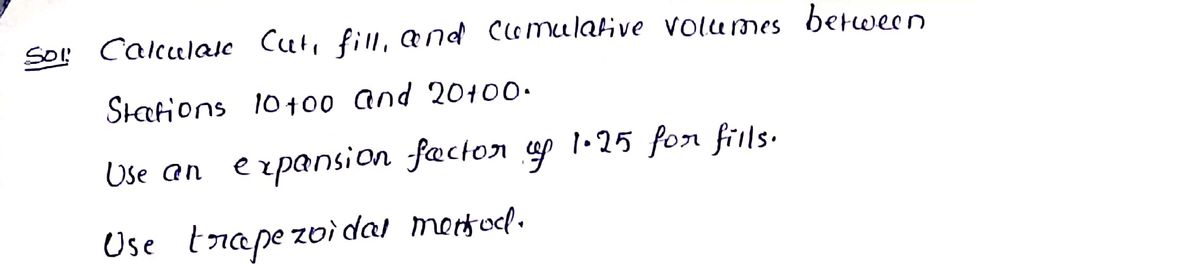 Sol: Calculate Cut, fill, and cumulative volumes between
Stations 10+00 and 20+00.
Use an expansion factor of 1.25 for fills.
Use trapezoidal method.